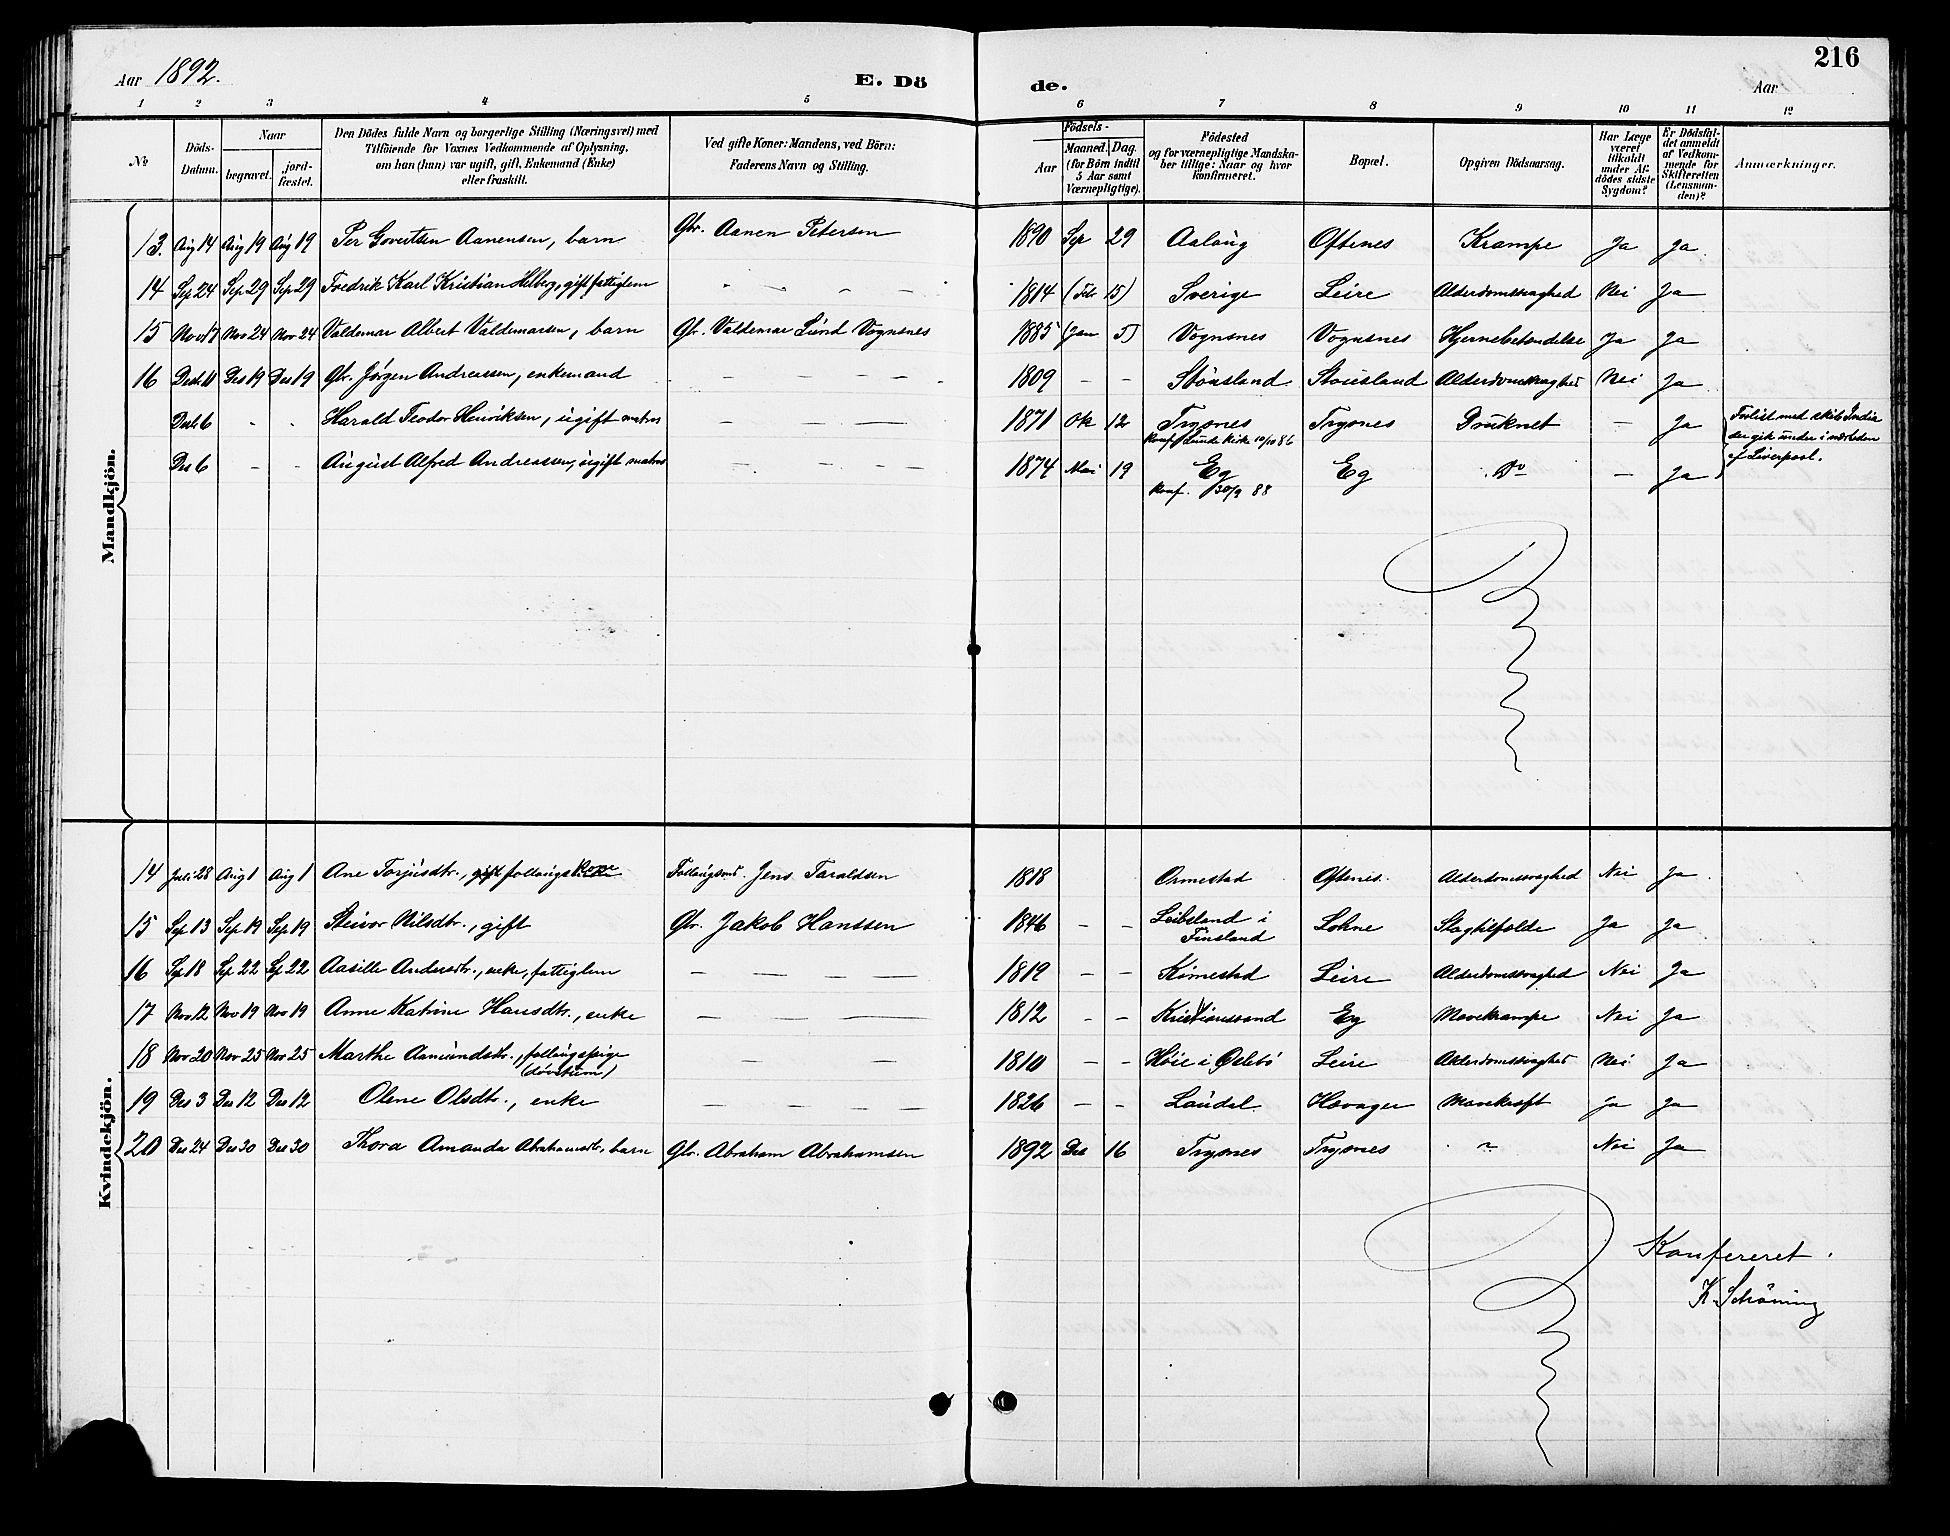 Aar 1892. E. Dö de. Aar 216
1 2 3 4 5 6 7 8 9 10 11 12
No
Döds-Datum.
Naar begravet. jord-fæstet.
Den Dödes fulde Navn og borgerlige Stilling (Næringsvei) med Tilföiende for Voxnes Vedkommende af Oplysning, om han (hun) var ugift, gift, Enkemand (Enke) eller fraskilt.
Ved gifte Koner: Mandens, ved Börn: Faderens Navn og Stilling.
Födsels- Aar Maaned. Dag. (for Börn indtil 5 Aar samt Værnepligtige).
Födested og for værnepligtige Mandskaber tillige: Naar og hvor konfirmeret.
Bopæl.
Opgiven Dödsaarsag.
Har Læge været tilkaldt under Afdödes sidste Sygdom?
Er Dödsfaldet anmeldt af Vedkommende for Skifteretten (Lensmanden)?
Anmærkninger.
Mandkjön.
13. Aug 14 Aug 19 Aug 19 Per Govertsen Aanensen, barn Gbr. Aanen Petersen 1890 Sep 29 Aalaug Oftenes Krampe Ja Ja
14 Sep 24 Sep 29 Sep 29 Fredrik Karl Kristian Helberg, gift, fattiglem - - - - 1814 (Feb 15) Sverige Leire Alderdomssvaghed Nei Ja
15 Nov 17 Nov 24 Nov 24 Valdemar Albert Valdemarsen, barn Gbr. Valdemar Lund Vognsnes 1885 (Jan 5) Vognsnes Vognsnes Hjernebetændelse Ja Ja
16 Decb. 11 Des 19 Des 19 Gbr. Jørgen Andreassen, enkemand - - - - 1809 - - Stausland Stausland Alderdomssvaghed Nei Ja
Decb. 6 - - Harald Teodor Henriksen, ugift matros - - - - 1871 Ok 12 Trysnes Trysnes Druknet - Ja Forlist med skib India
Konf. Lunde kirke 10/10 86 der gik under i nærheden
Des 6 - - August Alfred Andreassen, ugift matros - - - - 1874 Mai 19 Eg Eg Do - Ja af Liverpool.
Konf. 30/9 88
Kvindekjön.
14 Juli 28 Aug 1 Aug 1 Ane Torjusdtr., gift follaugskone Follaugsmd. Jens Taraldsen 1818 Ormestad Oftenes. Alderdomssvaghed Nei Ja
15 Sep 13 Sep 19 Sep 19 Steivor Nilsdtr., gift Gbr. Jakob Hanssen 1846 - - Leibsland i Finsland Lohne Slagtilfælde Ja Ja
16 Sep 18 Sep 22 Sep 22 Aasille Andersdtr., enke, fattiglem - - - - 1819 - - Kimestad Leire Alderdomssvaghed Nei Ja
17 Nov 12 Nov 19 Nov 19 Anne Katrine Hansdtr., enke - - - 1812 - - Kristianssand Eg Mavekrampe Nei Ja
18 Nov 20 Nov 25 Nov 25 Marthe Aamundsdtr., follaugspige (døvstum) - - 1810 - - Høie i Øslebø Leire Alderdomssvaghed Nei Ja
19 Des 3 Des 12 Des 12 Olene Olsdtr., enke - - - - 1826 - - Laudal Havager Mavekræft Ja Ja
20 Des 24 Des 30 Des 30 Thora Amanda Abrahamsdtr., barn Gbr. Abraham Abrahamsen 1892 Des 16 Trysnes Trysnes ~ Nei Ja
Konfereret.
K. Schöning